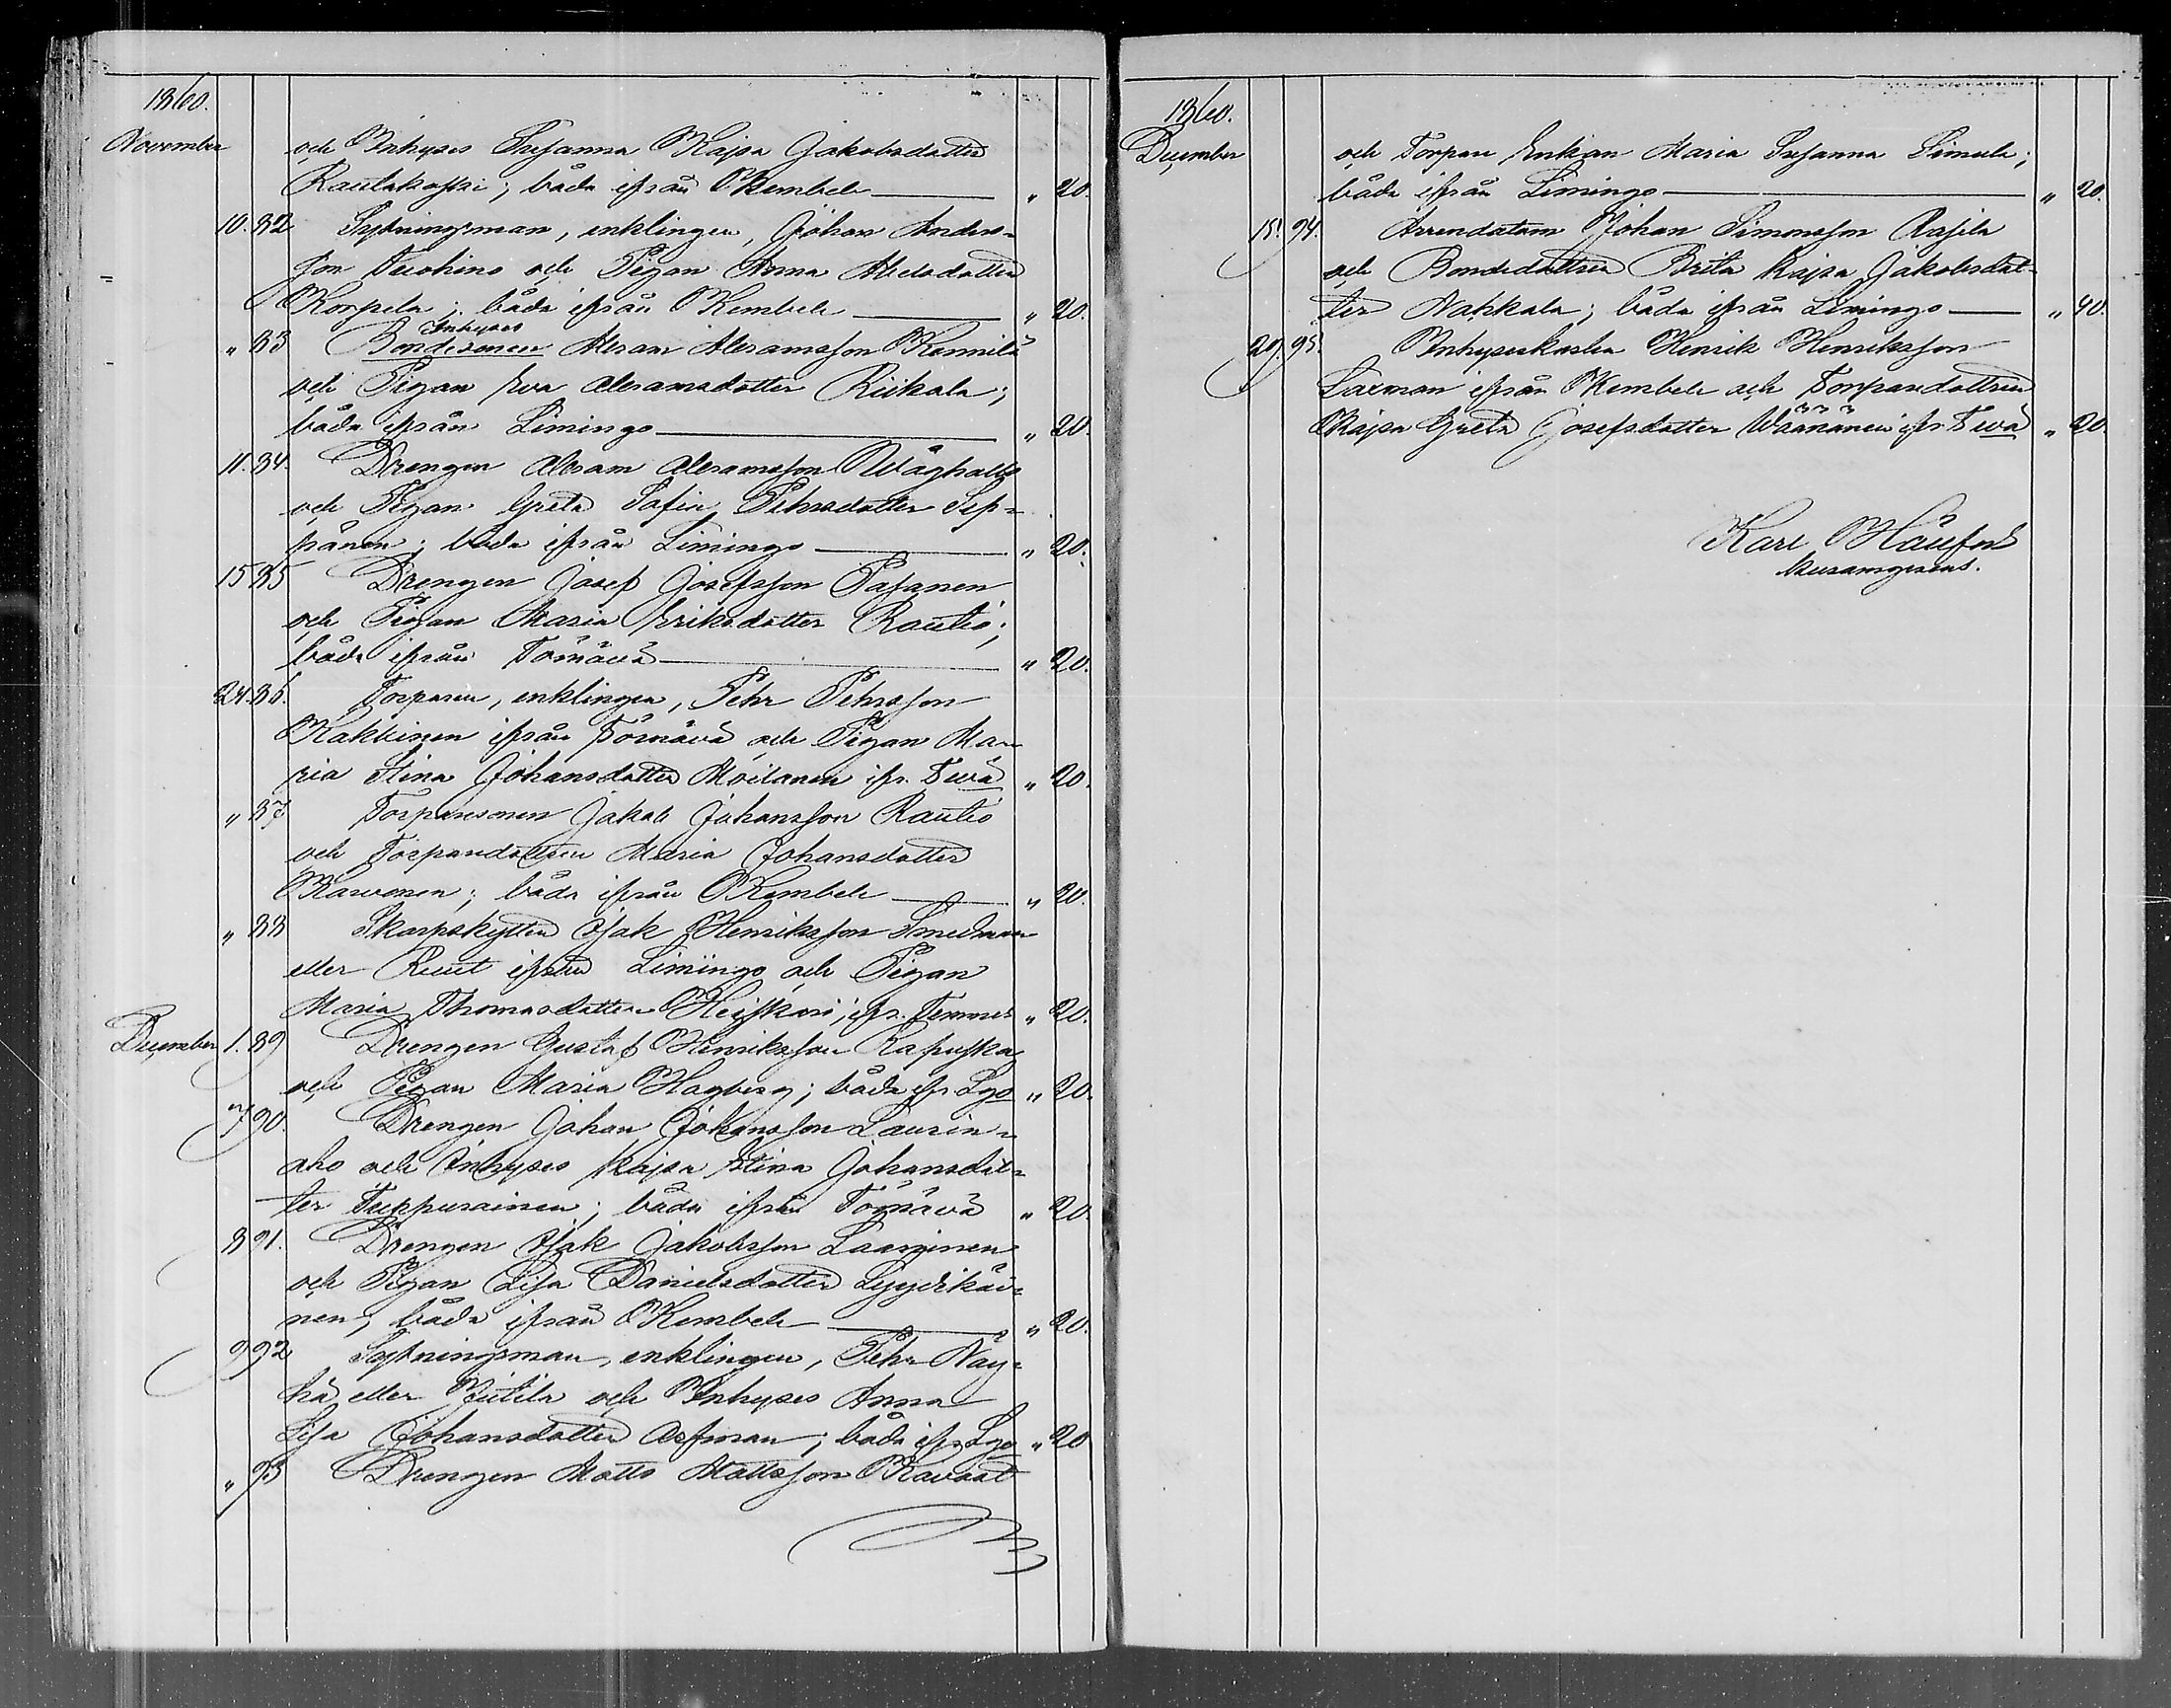 1860.
November och Inhyses Susanna Kajsa Jakobsdotter
Rautakoski; båda ifrån Kembele " 20.
10. 82 Sytningsman, enklingen, Johan Anders-
son Tuohino och Pigan Anna Abelsdotter
Korpela; båda ifrån Kembele " 20.
Inhyses
" 83 Bondesonen Abram Abramsson Kennilä
och Pigan Eva Abramsdotter Riikola;
båda ifrån Limingo " 20.
11. 84. Drengen Abram Abramsson Wåghals
och Pigan Greta Sofia Pehrsdotter Sep-
pänen; båda ifrån Limingo " 20.
15 85 Drengen Josef Josefsson Pasanen
och Pigan Maria Eriksdotter Rautio;
båda ifrån Törnävä " 20.
24. 86. Torparen, enklingen, Pehr Pehrsson
Kakkinen ifrån Törnävä och Pigan Ma-
ria Stina Johansdotter Moilanen ifr. Tvä " 20.
" 87 Torparesonen Jakob Johansson Rautio
och Torparedottren Maria Johansdotter
Karvonen; båda ifrån Kembele " 20.
" 88 Skarpskytten Isak Henriksson Smedman
eller Ruut ifrån Limingo och Pigan
Maria Thomasdotter Heiskari; ifr. Temmes " 20.
December 1. 89 Drengen Gustaf Henriksson Rapuska
och Pigan Maria Hagberg; båda ifr. Lgo " 20.
7 90. Drengen Johan Johansson Laurin-
aho och Inhyses Kajsa Stina Johansdot-
ter Tuppurainen; båda ifrån Törnävä " 20.
8 91. Drengen Isak Jakobsson Laaninen
och Pigan Lisa Danielsdotter Lyydikäi-
nen; båda ifrån Kembele " 20.
9 92 Sytningsman, enklingen, Pehr Näy-
hä eller Jutila och Inhyses Anna
Lisa Johansdotter Asfman; båda ifr. Lgo " 20
" 93 Drengen Matts Mattsson Kavaat
1860.
December och Torpare Enkan Maria Susanna Simula;
båda ifrån Limingo " 20.
15. 94. Arrendatorn Johan Simonsson Rasila
och Bondedottren Brita Kajsa Jakobsdot-
ter Nahkala; båda ifrån Limingo " 40.
29. 95. Inhyseskarlen Henrik Henriksson
Laxman ifrån Kembele och Torparedottren
Kajsa Greta Josefsdotter Wäänänen ifr. Tvä " 20.
Karl